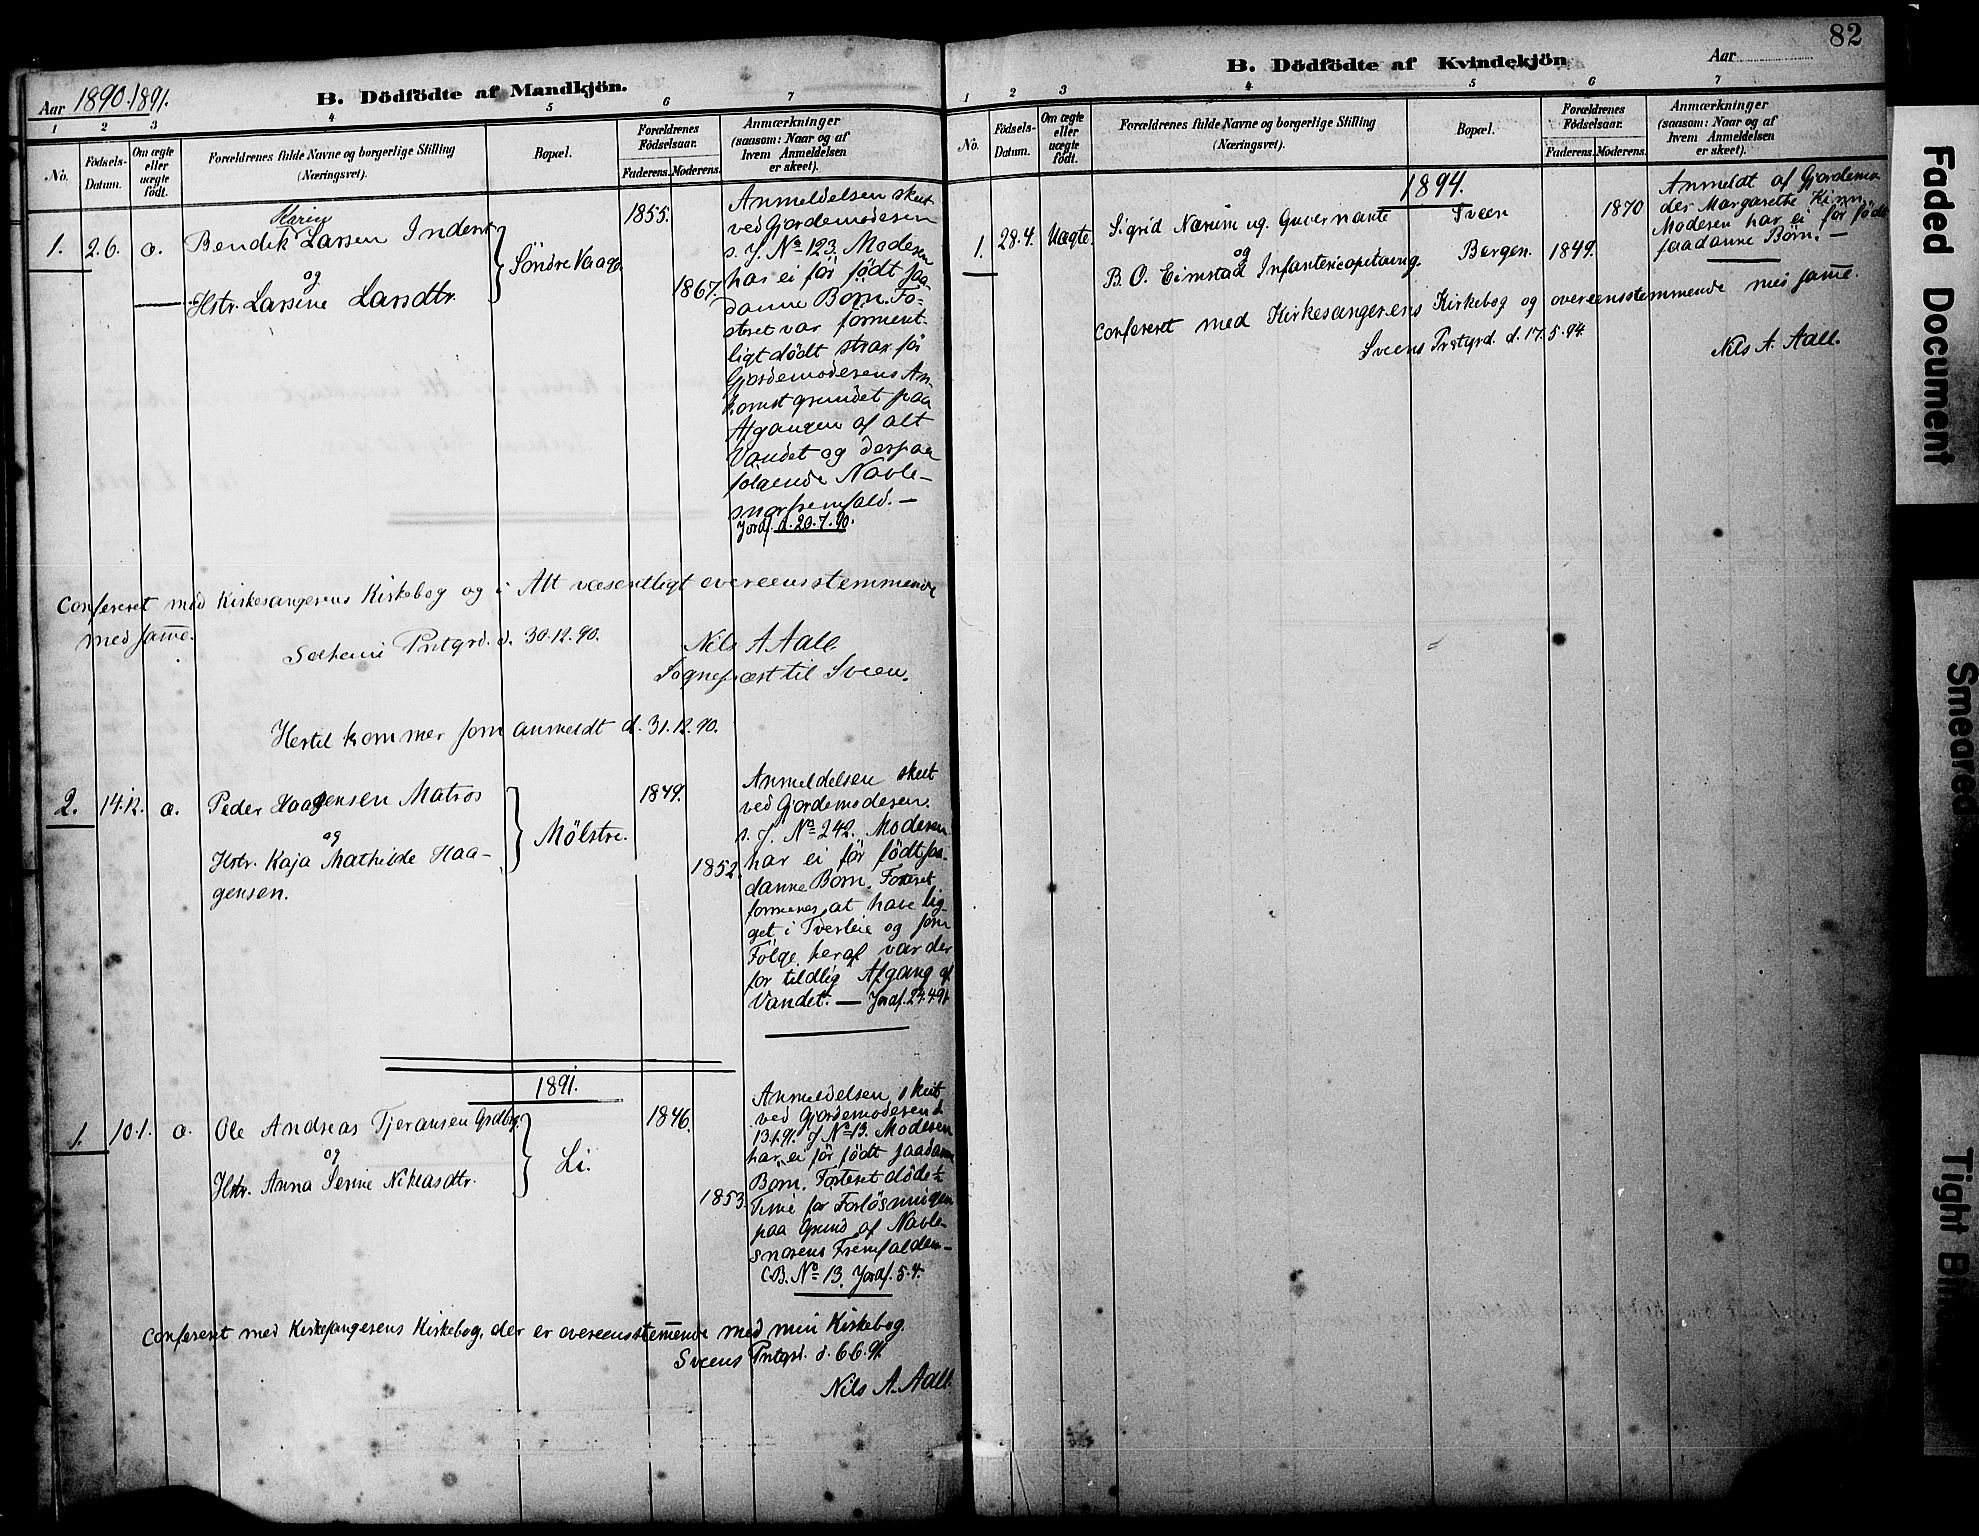 Aar 1890.1891.
B. Dödfödte af Mandkjön.
1 2 3 4 5 6 7
No.
Födsels-Datum.
Om ægte eller uægte födt.
Forældrenes fulde Navne og borgerlige Stilling
(Næringsvei).
Bopæl.
Forældrenes Födselsaar.
Faderens. Moderens.
Anmærkninger
(saasom: Naar og af
hvem Anmeldelsen
er skeet).
1. 26. æ.
Bendik Larsen Indent
og
Hstr. Larsine Larsdtr.
Söndre Vaage
1855.
1867.
Anmeldelsen skeet
ved Gjordemoderen
s. J. No 123. Moderen
har ei för födt saa-
danne Börn. Fo-
steret var forment-
ligt dödt strax för
Gjordemoderens An-
komst grundet paa
Afgangen af alt
Vandet og derpaa
fölgende Navle-
snorfremfald. —
Jordf. d. 20.7.90.
Confereret med Kirkesangerens Kirkebog og i Alt væsentligt overeensstemmende
med samme.
Prstgrd. d. 30.12.90.
Nils A. Aall.
Sognepræst til Sveen.
Hertil kommer som anmeldt d. 31.12.90.
2. 14.12. æ.
Peder Haagensen Matros
og
Hstr. Kaja Mathilde Haa-
gensen.
Mölstre.
1849.
1852.
Anmeldelsen skeet
ved Gjordemoderen.
s. J. No 242. Moderen
har ei för födt saa-
danne Börn. Fosteret
formenes at have lig-
get i Tverleie og som
Fölge heraf var der
for tidlig Afgang af
Vandet. — Jordf. 24.4.91
1891.
1. 10.1. æ.
Ole Andreas Tjeransen Grdbr.
og
Hstr. Anna Serine Niklasdtr.
Li.
1846.
1853.
Anmeldelsen skeet
ved Gjordemoderen d.
13.1.91. J No 13. Moderen
har ei för födt saadanne
Börn. Fosteret döde ½
Time för Forlösningen
paa Grund af Navle-
snorens Fremfalden —
C.B. No 13. Jordf. 5.4.
Confereret med Kirkesangerens Kirkebog, der er overeensstemmende med min Kirkebog.
Sveens Prstgrd. d. 6.6.91
Nils A. Aall.
82
B. Dödfödte af Kvindekjön
Aar
1 2 3 4 5 6 7
No.
Födsels-Datum.
Om ægte eller uægte födt.
Forældrenes fulde Navne og borgerlige Stilling
(Næringsvei).
Bopæl.
Forældrenes Födselsaar.
Faderens. Moderens.
Anmærkninger
(saasom: Naar og af
hvem Anmeldelsen
er skeet).
1894.
1. 28.4. Uægte.
Sigrid Nærim ug. Guvernante
og
B. O. Eimstad Infantericapitain
Sveen
Bergen.
1849.
1870
Anmeldt af Gjordemo-
der Margarethe
Moderen har ei för födt
saadanne Börn. —
Confereret med Kirkesangerens Kirkebog og overeensstemmende med samme.
Sveens Prstgrd. d. 17.5.94
Nils A. Aall.
Faded Document
Smeared
Tight Bi